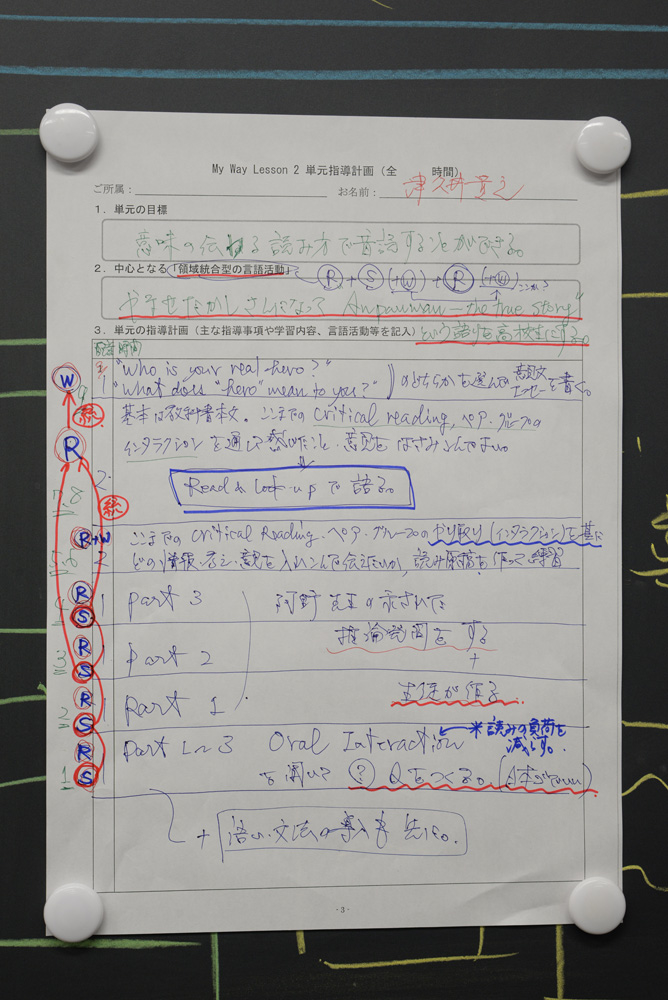 My Way Lesson 2 単元指導計画（全　　時間）
ご所属：　　お名前：津久井貴之
1．単元の目標
意味の伝わる読み方で音読することができる。
2．中心となる「領域統合型の言語活動」 R + S (+W) + R (+W)
やなせたかしさんになって Anpanman—the true story"
3．単元の指導計画（主な指導事項や学習内容、言語活動等を記入） という語りを高校生にする。
時間
W 1 "Who is your real hero?"
"What does "hero" mean to you?" のどちらかを選んで意見文エッセーを書く。
R 2 基本は教科書本文。ここまでの critical reading, ペア・グループの
インタラクションを通して感じたこと・意見をはさみこんでよい。
Read & Look-up で語る。
R+W 2 ここまでの Critical Reading・ペア・グループのやり取り（インタラクション）を基に
どの情報・考え・意見を入れこんで伝えたいか、読み原稿を作って練習
R S 1 Part 3 阿野先生の示された
推論発問をする
R S 1 Part 2 +
R S 1 Part 1 生徒が作る
R S 1 Part 1~3 Oral Interaction ←＊読みの負荷を
減らす。
を聞いて ? Qをつくる。
+ 語い・文法の導入も先に。
- 3 -